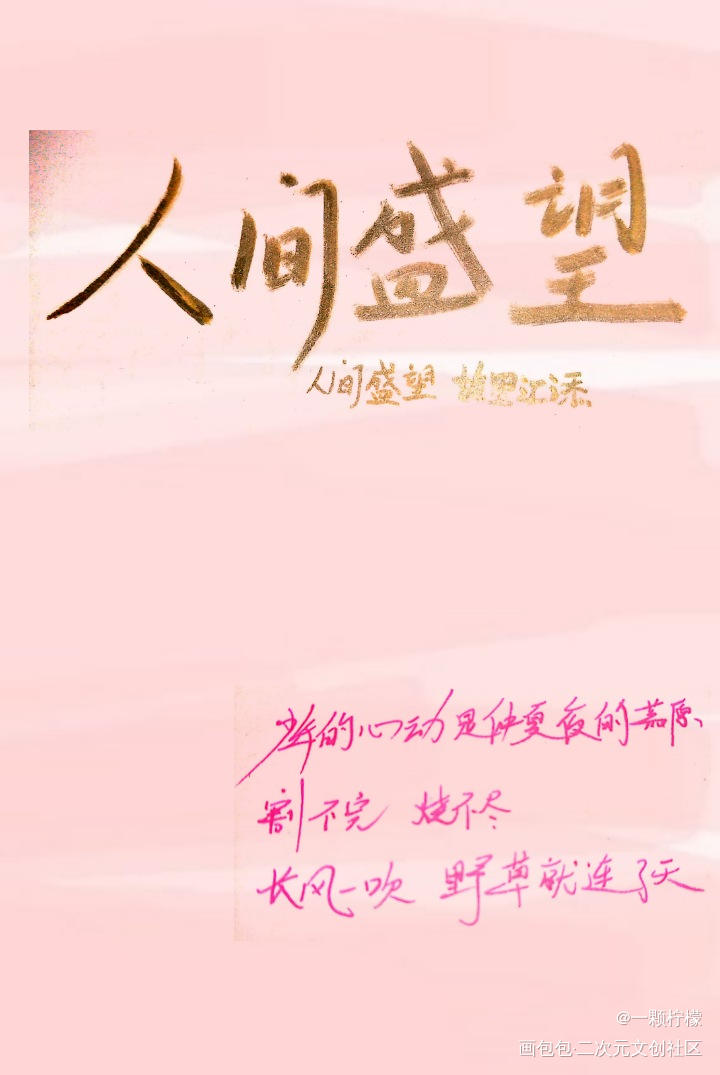 人间盛望
人间盛望 故里江添
少年的心动是仲夏夜的荒原
割不完 烧不尽
长风一吹 野草就连了天
@一颗柠檬
画包包·二次元文创社区